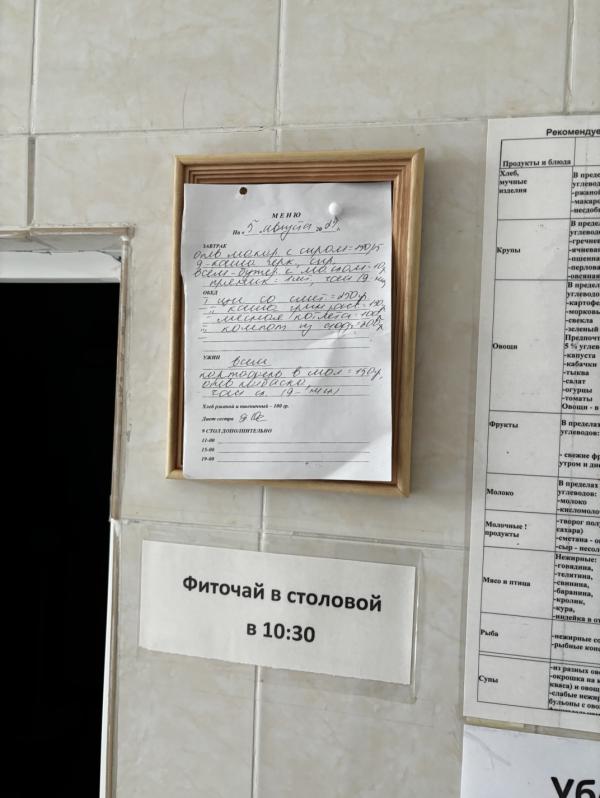 МЕНЮ
На « 5 августа 20 г.
ЗАВТРАК
отв макар с сыром = 150/5
д - каша греч, сыр
всем - бутер с маслом = 10
пряник = 1 шт, чай 19
ОБЕД
I щи со смет = 250г
II каша
II мясная котлета = 100г
компот из сухоф
УЖИН всем
картофель в мол = 150г,
отв колбаска
чай сл. 19-
Хлеб ржаной и пшеничный – 100 гр.
Диет сестра
9 СТОЛ ДОПОЛНИТЕЛЬНО
11-00
15-00
19-00
Фиточай в столовой
в 10:30
Рекомендуе
Продукты и блюда
Хлеб,
мучные
изделия
В преде
углевод
-ржаной
-макаро
-несдоб
Крупы
В преде
углевод
-гречнев
-ячневая
-пшенна
-перлова
-овсяная
Овощи
В преде
углевод
-картофе
-морковь
-свекла
-зеленый
Предпочт
5 % углев
-капуста
-кабачки
-тыква
-салат
-огурцы
-томаты
Овощи - в
Фрукты
В пределах
углеводов:
- свежие фр
утром и дне
Молоко
В пределах
углеводов:
-молоко
-кисломоло
Молочные
продукты
-творог пол
сахара)
-сметана - о
-сыр - несол
Мясо и птица
Нежирные:
-говядина,
-телятина,
-свинина,
-баранина,
-кролик,
-кура,
-индейка в от
Рыба
-нежирные со
-рыбные конс
Супы
-из разных ово
-окрошка на к
кваса) и овощ
-слабые нежир
бульоны с ово
Уб